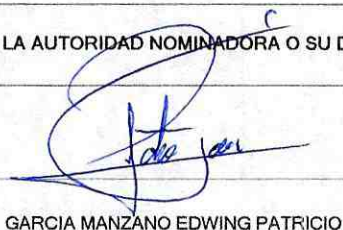 LA AUTORIDAD NOMINADORA O SU D
GARCIA MANZANO EDWING PATRICIO